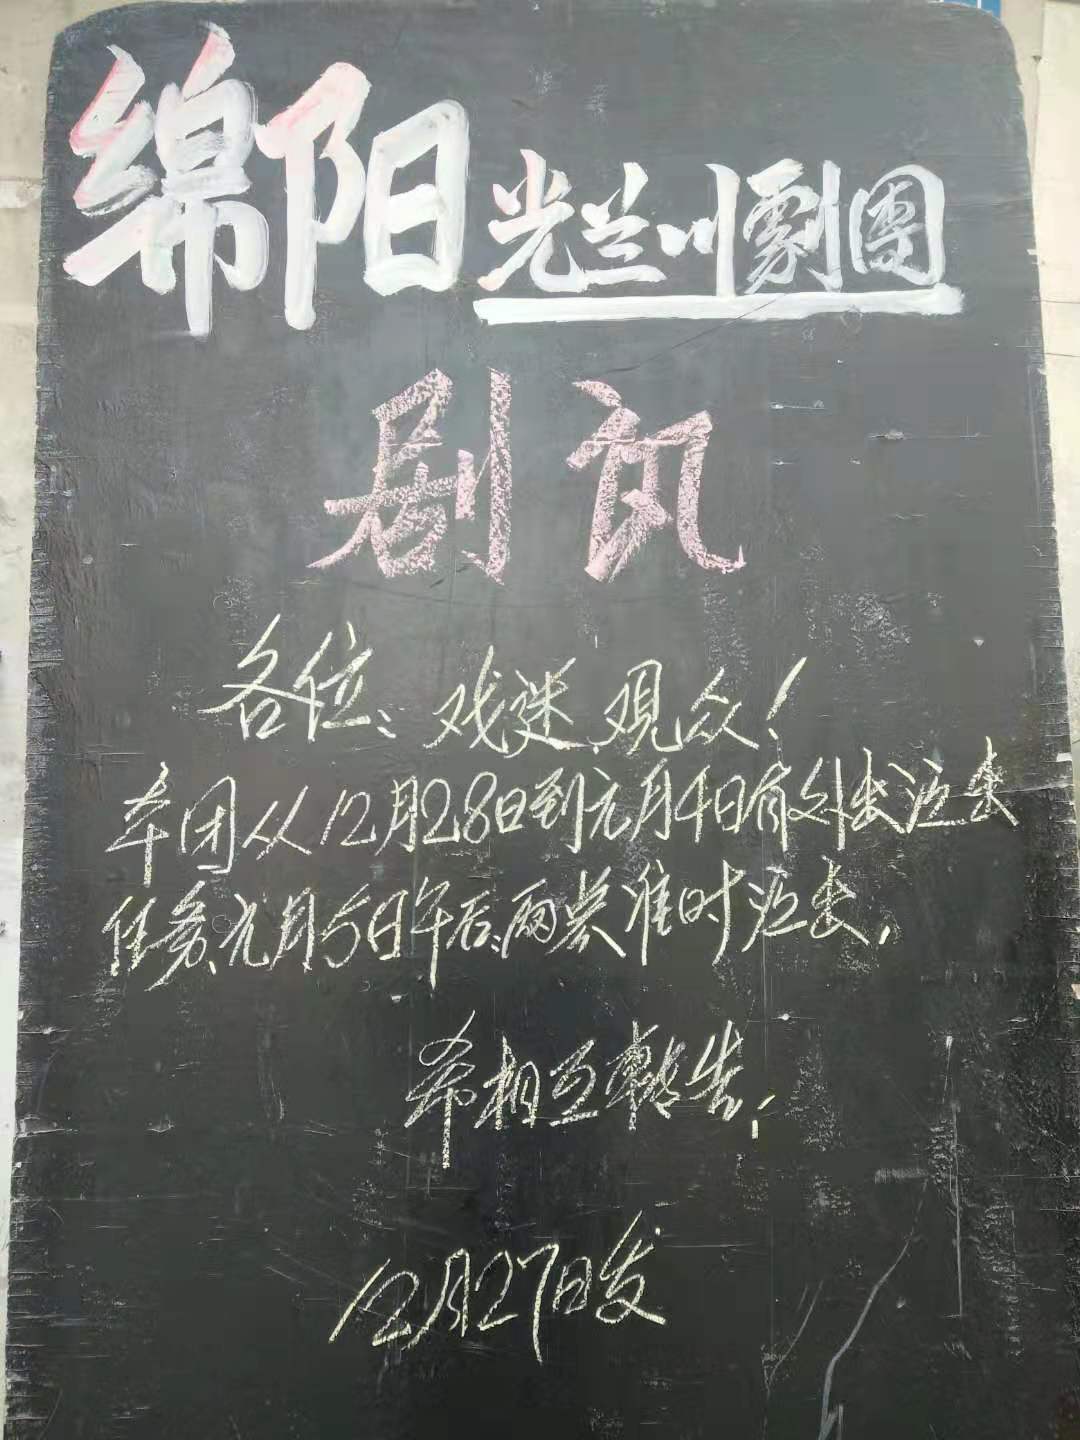 绵阳光兰川劇團
剧讯
各位、戏迷、观众！
本团从12月28日到元月4日有外出演出
任务、元月5日午后、两点准时演出，
希相互轉告，
12月27日发